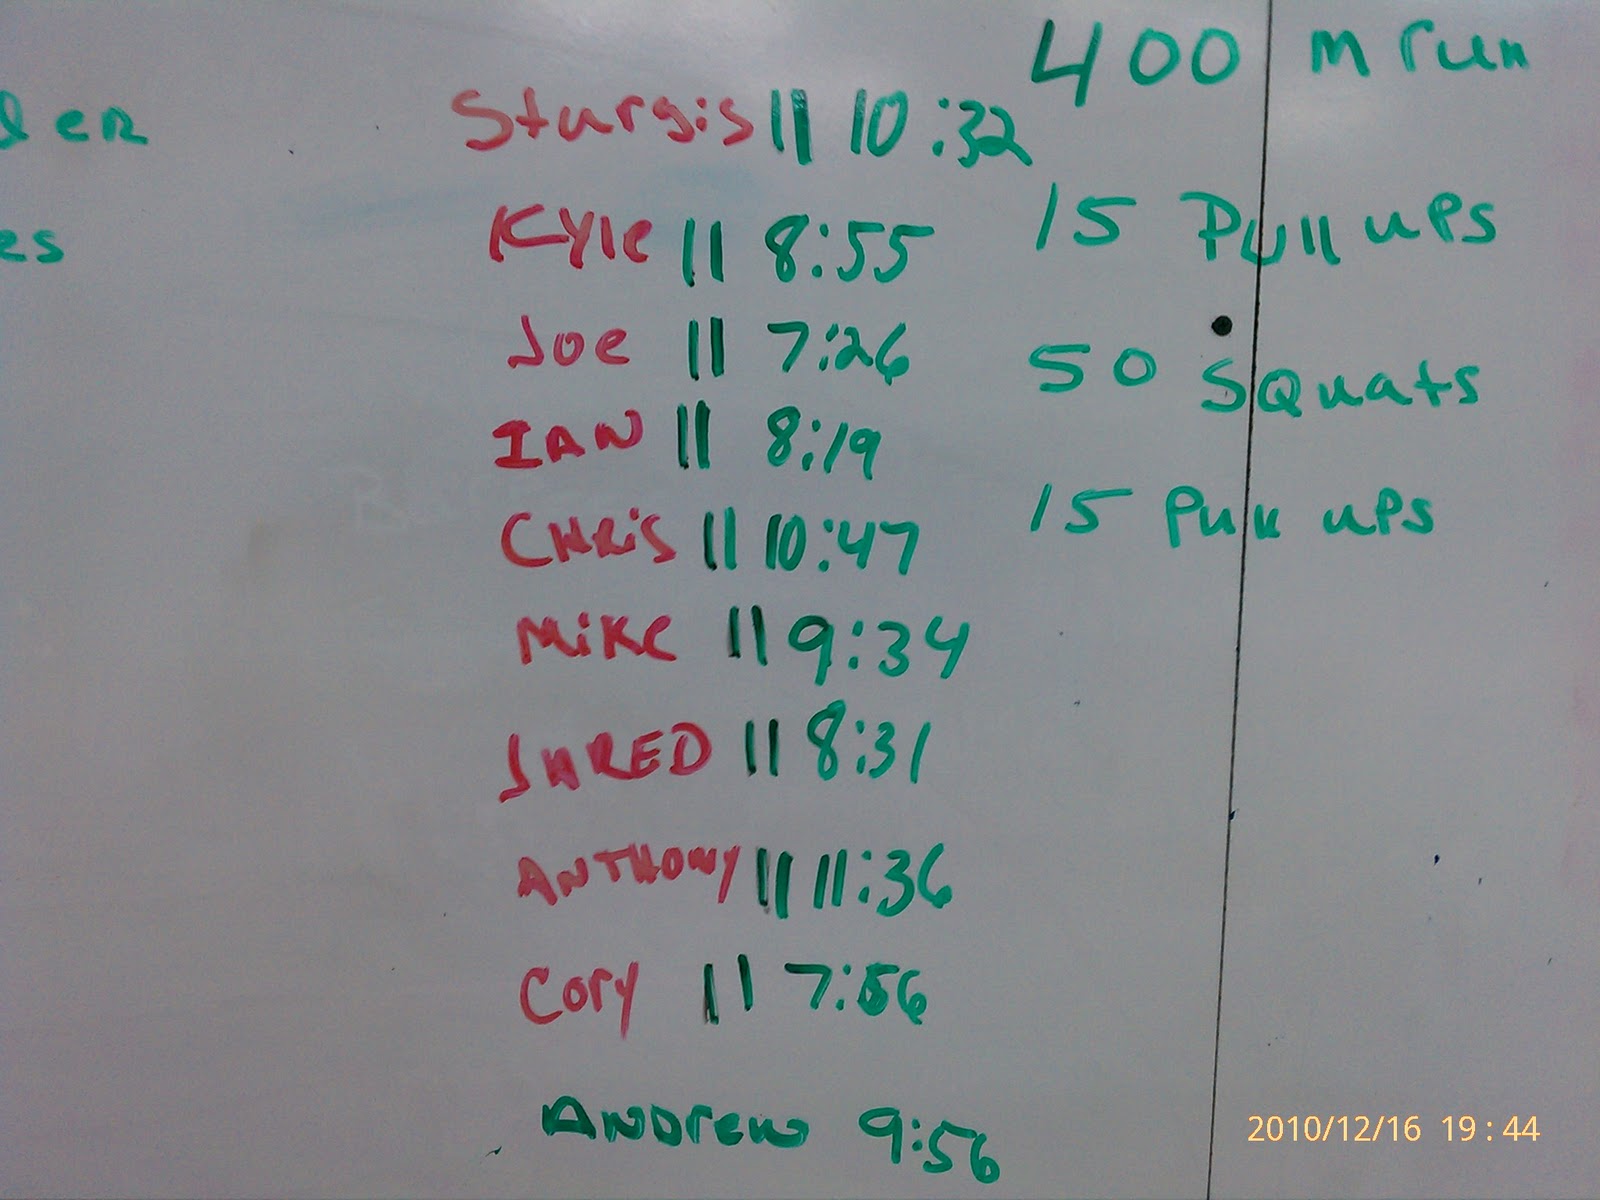 400 m run
Sturgis || 10:32
Kyle || 8:55
15 Pull ups
Joe || 7:26
50 Squats
IAN || 8:19
CHRiS || 10:47
15 Push ups
MiKe || 9:34
JHRED || 8:31
ANTHONY || 11:36
Cory || 7:56
ANDrew 9:56
2010/12/16 19:44